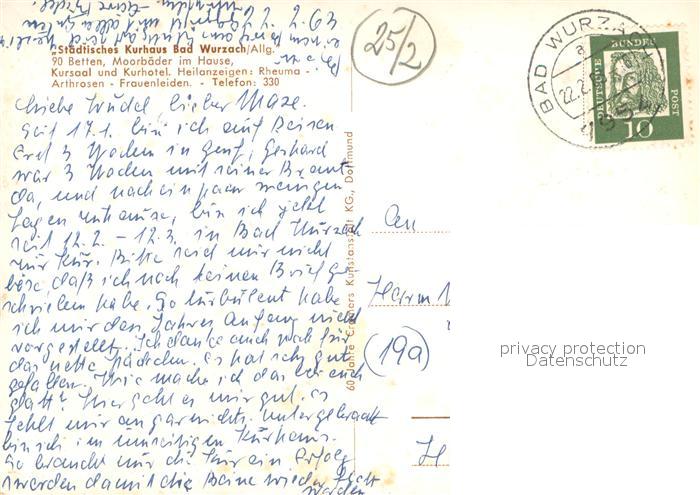 Städtisches Kurhaus Bad Wurzach/Allg.
90 Betten, Moorbäder im Hause,
Kursaal und Kurhotel. Heilanzeigen: Rheuma -
Arthrosen - Frauenleiden. - Telefon: 330
25/2
BAD WURZACH
a
22.2.
DEUTSCHE BUNDESPOST
10
Liebe Trudel, lieber Maze.
Seit 17.1. bin ich auf Reisen
Erst 3 Wochen in Genf, Gerhard
war 3 Wochen mit seiner Braut
da, und nach ein paar wenigen
Tagen zuhause, bin ich jetzt
seit 12.2. - 12.3. in Bad Wurzach
zur Kur. Bitte seid mir nicht
böse, daß ich noch keinen Brief ge-
schrieben habe. So turbulent habe
ich mir den Jahres Anfang nicht
vorgestellt. Ich danke euch noch für
das nette Päckchen. Es hat sehr gut
gefallen. Wie mache ich das bei euch
glatt? Hier geht es mir gut. Es
fehlt mir an garnichts. Untergebracht
bin ich im umseitigen Kurhaus.
So braucht nur die Kur ein Erfolg
werden damit die Beine wieder
werden
60 Jahre Kunstanstalt KG., Dortmund
An
Herrn
(19a)
H
privacy protection
Datenschutz